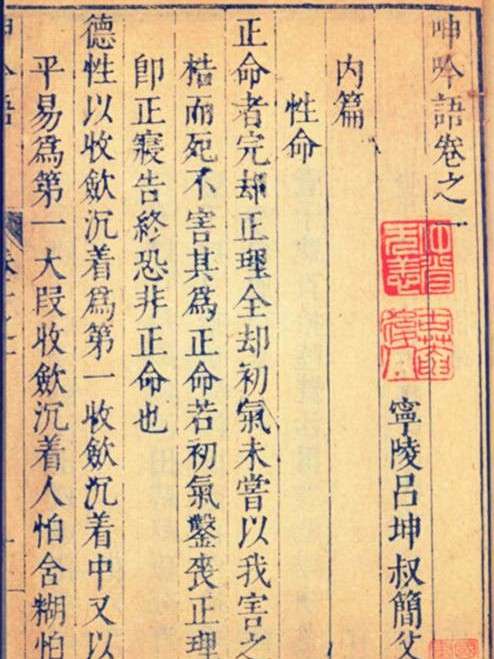 呻吟語卷之一
寧陵呂坤叔簡父
内篇
性命
正命者完却正理全却初氣未嘗以我害之
梏而死不害其爲正命若初氣鑿喪正理
卽正寢告終恐非正命也
德性以收歛沉着爲第一收歛沉着中又以
平易爲第一大段收歛沉着人怕含糊怕